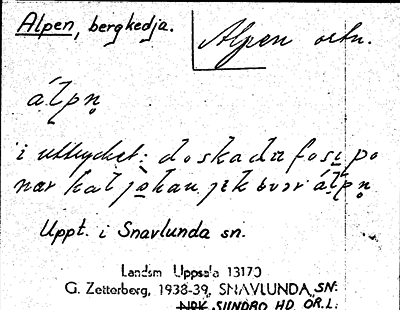 Alpen, bergkedja.
Alpen ortn.
álpn̥
i uttrycket: do ska du fo si po
när kal johan jek övär álpn̥
Uppt. i Snavlunda sn.
Landsm Uppsala 13170
G. Zetterberg, 1938-39, SNAVLUNDA SN.
SUNDBO HD ÖR.L.